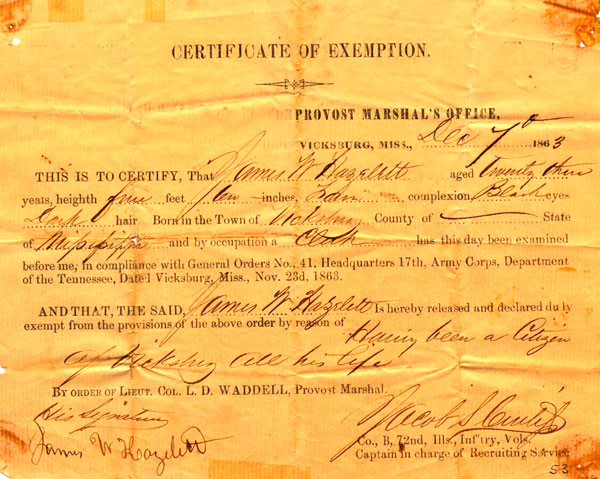 CERTIFICATE OF EXEMPTION.
PROVOST MARSHAL'S OFFICE,
VICKSBURG, MISS., Dec 7th 1863
THIS IS TO CERTIFY, That James W Hazelett aged twenty three
years, heighth five feet ten inches, complexion Black eyes
Dark hair Born in the Town of Vicksburg County of State
of Mississippi and by occupation a Clerk has this day been examined
before me, in compliance with General Orders No., 41, Headquarters 17th, Army Corps, Department
of the Tennessee, Date1 Vicksburg, Miss., Nov. 23d, 1863.
AND THAT, THE SAID, James W Hazelett Is hereby released and declared duly
exempt from the provisions of the above order by reason of Having been a Citizen
of Vicksburg all his life
BY ORDER OF LIEUT. COL. L. D. WADDELL, Provost Marshal.
His Signature
James W Hazelett
Jacob S Curtiss
Co., B, 72nd, Ills., Inf'try, Vols.
Captain in charge of Recruiting Service
53